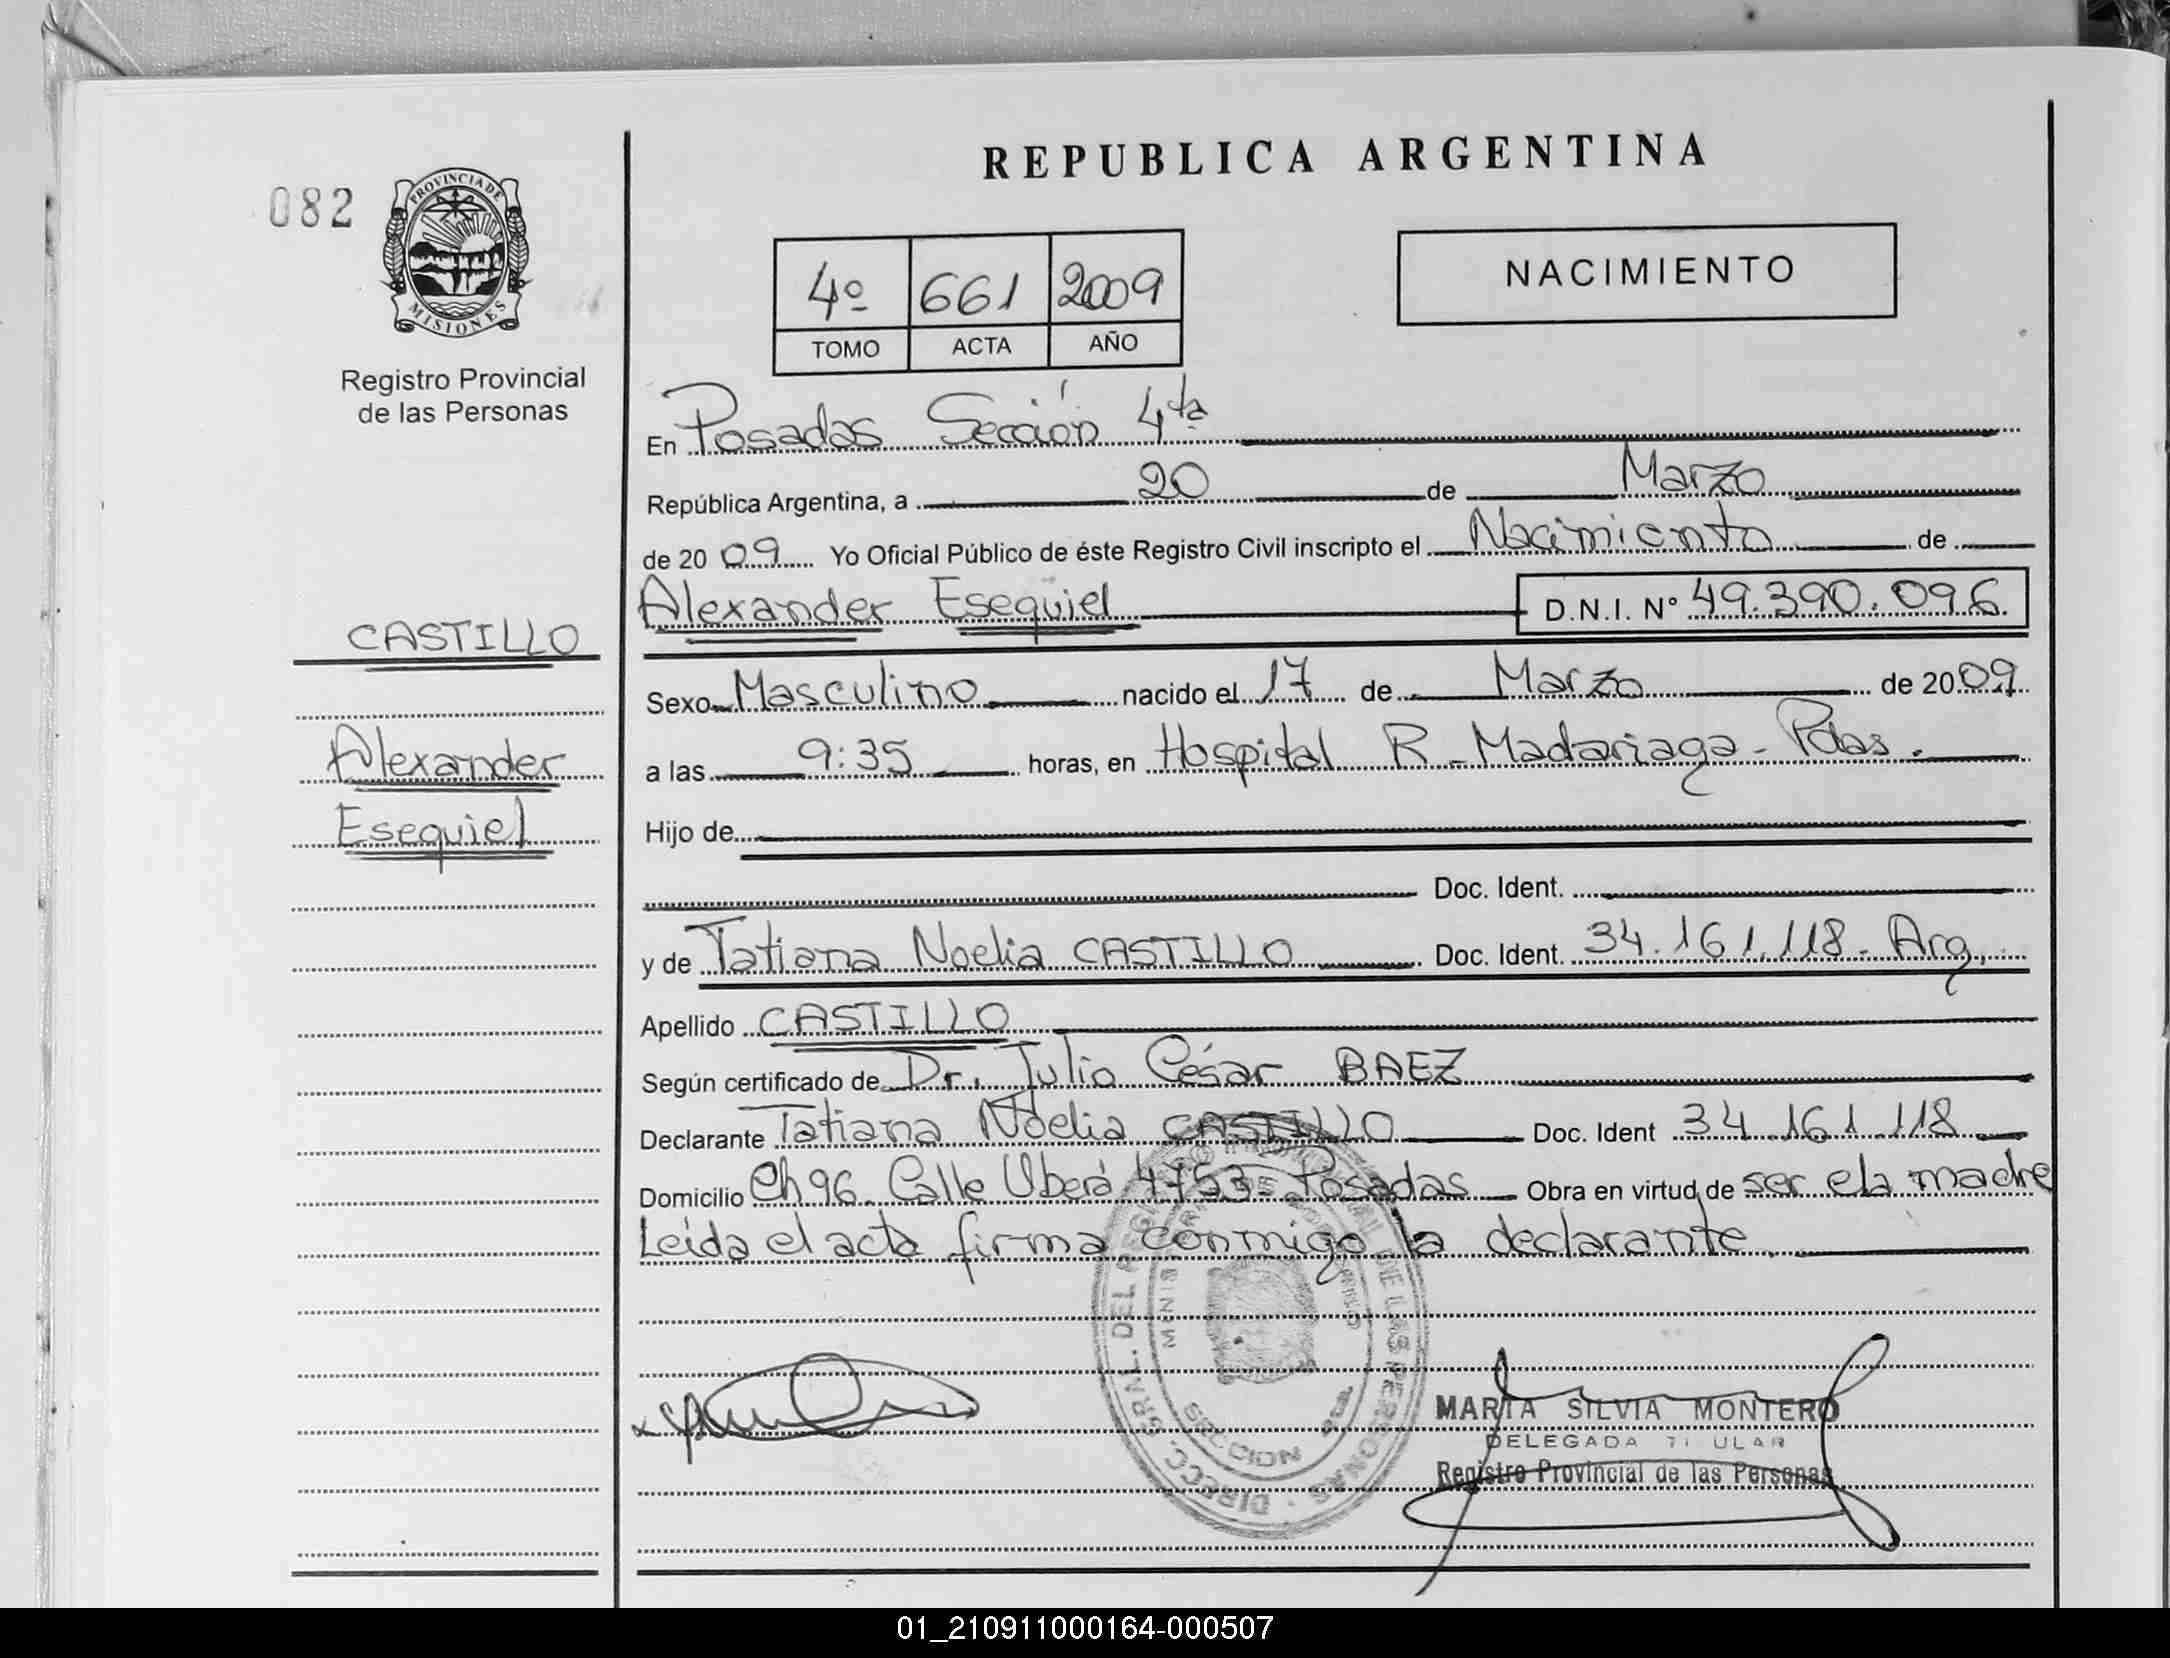 REPUBLICA ARGENTINA
082
PROVINCIA DE
MISIONES
Registro Provincial
de las Personas
4º 661 2009
TOMO ACTA AÑO
NACIMIENTO
En Posadas Sección 4ta
República Argentina, a 20 de Marzo
de 2009 Yo Oficial Público de éste Registro Civil inscripto el Nacimiento de
Alexander Esequiel D.N.I. Nº 49.390.096
CASTILLO
Alexander
Esequiel
Sexo Masculino nacido el 17 de Marzo de 2009
a las 9:35 horas, en Hospital R. Madariaga - Pdas.
Hijo de
Doc. Ident.
y de Tatiana Noelia CASTILLO Doc. Ident. 34.161.118 - Arg.
Apellido CASTILLO
Según certificado de Dr. Julio César BAEZ
Declarante Tatiana Noelia CASTILLO Doc. Ident 34.161.118
Domicilio Ch 96. Calle Uberá 4753 - Posadas Obra en virtud de ser ela madre
Leída el acta firma conmigo la declarante.
DIRECC. GRAL. DEL LAS PERSONAS
SECCION
MARIA SILVIA MONTERO
DELEGADA TI ULAR
Registro Provincial de las Personas
01_210911000164-000507